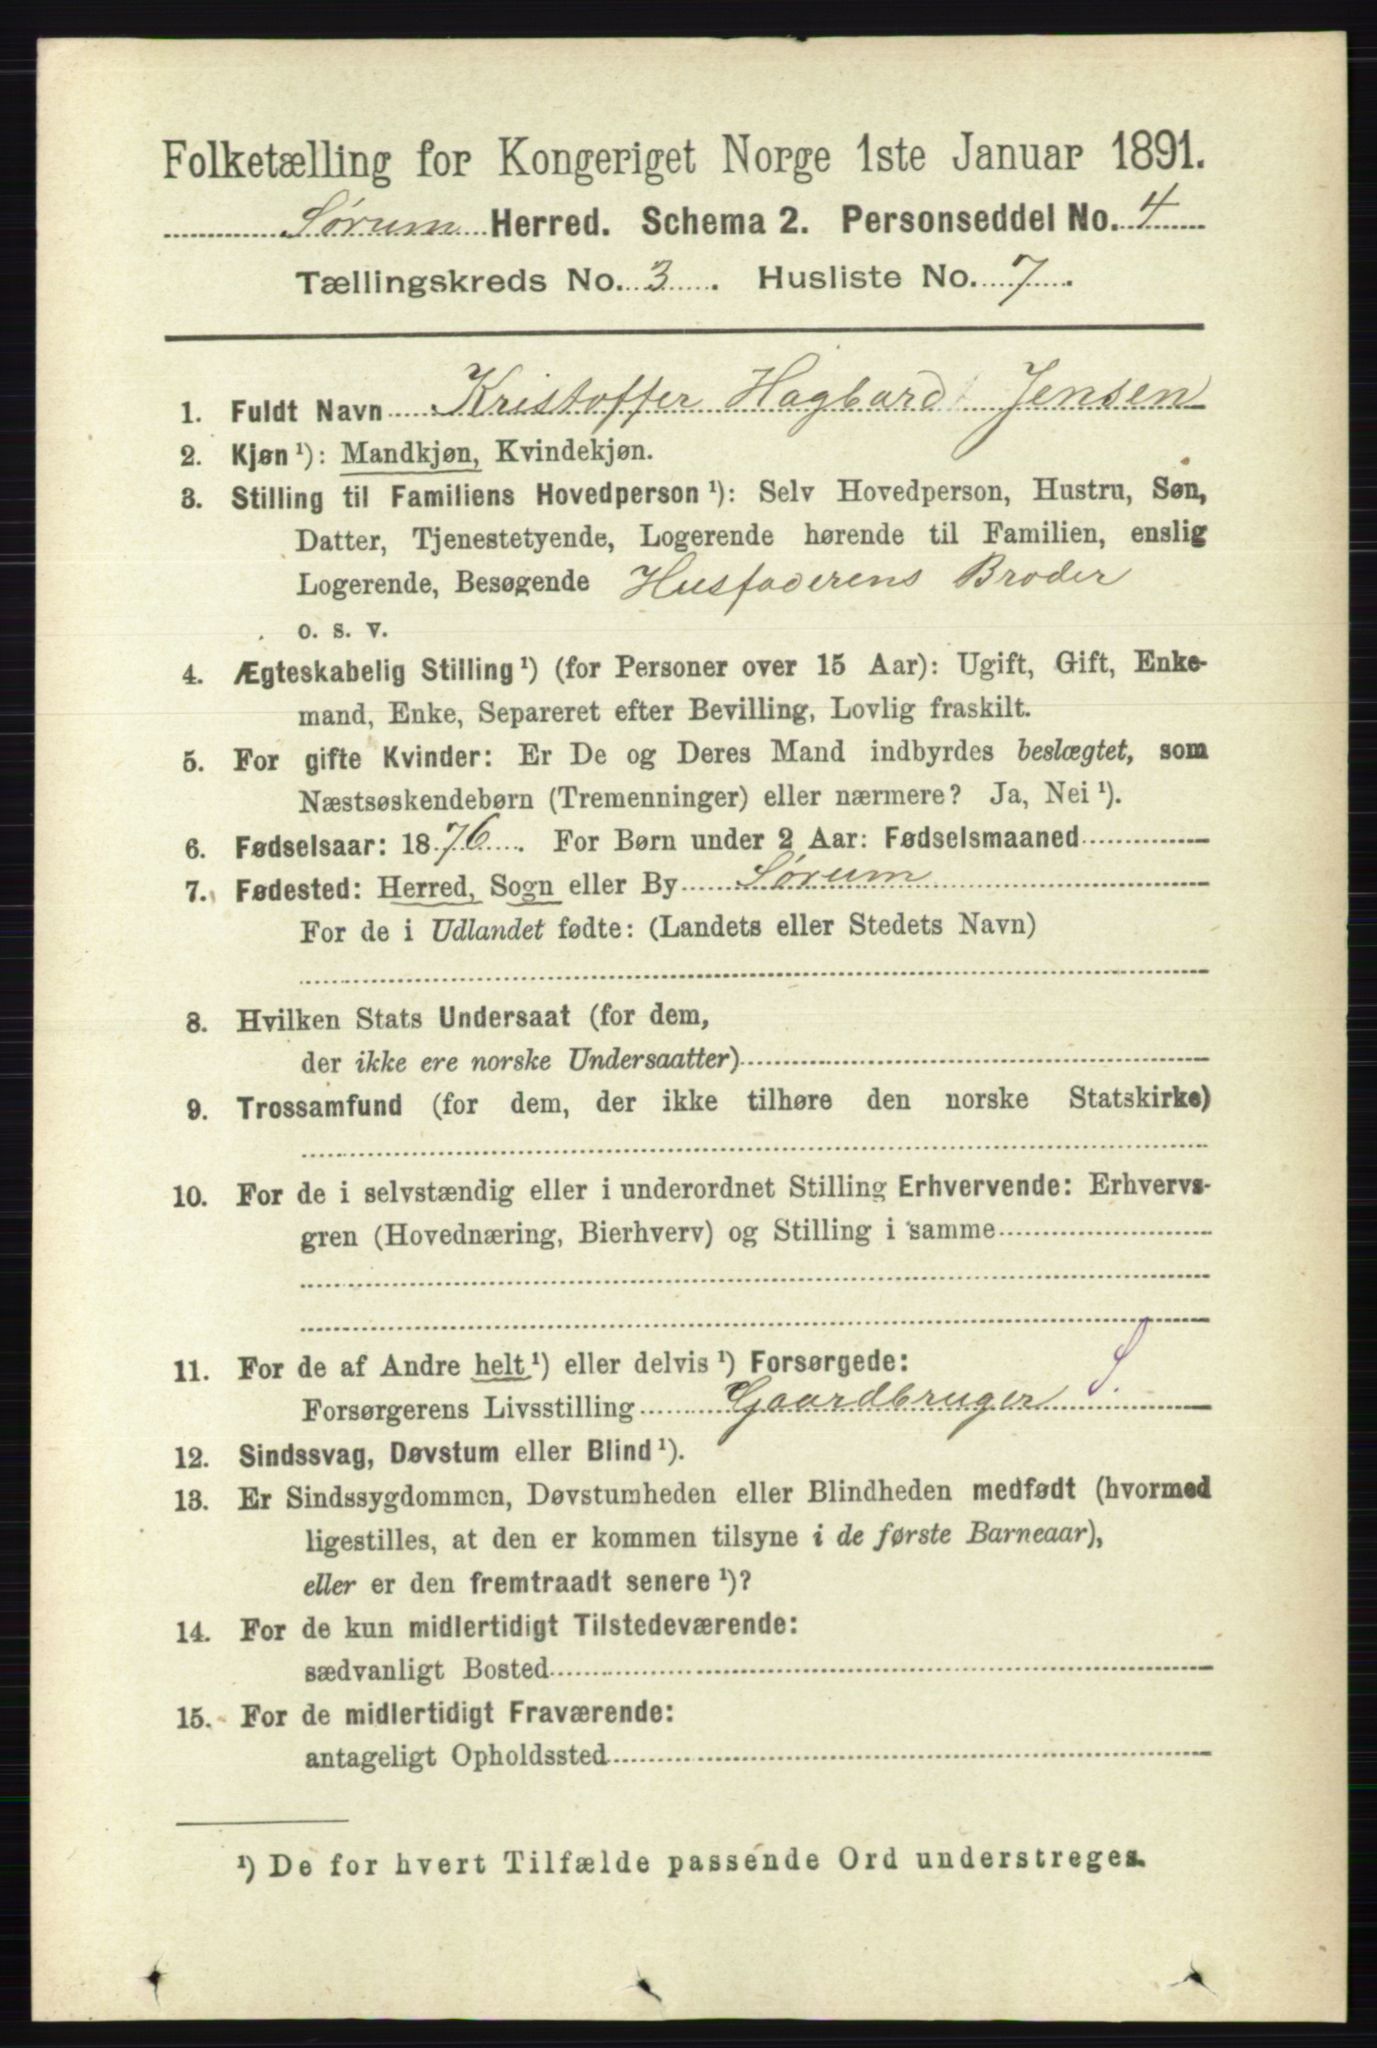 Folketælling for Kongeriget Norge 1ste Januar 1891.
Sørum Herred. Schema 2. Personseddel No. 4
Tællingskreds No. 3. Husliste No. 7.
1. Fuldt Navn Kristoffer Hagbard Jensen
2. Kjøn ¹): Mandkjøn, Kvindekjøn.
3. Stilling til Familiens Hovedperson ¹): Selv Hovedperson, Hustru, Søn,
Datter, Tjenestetyende, Logerende hørende til Familien, enslig
Logerende, Besøgende Husfaderens Broder
o. s. v.
4. Ægteskabelig Stilling ¹) (for Personer over 15 Aar): Ugift, Gift, Enke-
mand, Enke, Separeret efter Bevilling, Lovlig fraskilt.
5. For gifte Kvinder: Er De og Deres Mand indbyrdes beslægtet, som
Næstsøskendebørn (Tremenninger) eller nærmere? Ja, Nei ¹).
6. Fødselsaar: 1876. For Børn under 2 Aar: Fødselsmaaned
7. Fødested: Herred, Sogn eller By Sørum
For de i Udlandet fødte: (Landets eller Stedets Navn)
8. Hvilken Stats Undersaat (for dem,
der ikke ere norske Undersaatter)
9. Trossamfund (for dem, der ikke tilhøre den norske Statskirke)
10. For de i selvstændig eller i underordnet Stilling Erhvervende: Erhvervs-
gren (Hovednæring, Bierhverv) og Stilling i samme
11. For de af Andre helt ¹) eller delvis ¹) Forsørgede:
Forsørgerens Livsstilling Gaardbruger S.
12. Sindssvag, Døvstum eller Blind ¹).
13. Er Sindssygdommen, Døvstumheden eller Blindheden medfødt (hvormed
ligestilles, at den er kommen tilsyne i de første Barneaar),
eller er den fremtraadt senere ¹)?
14. For de kun midlertidigt Tilstedeværende:
sædvanligt Bosted
15. For de midlertidigt Fraværende:
antageligt Opholdssted
¹) De for hvert Tilfælde passende Ord understreges.